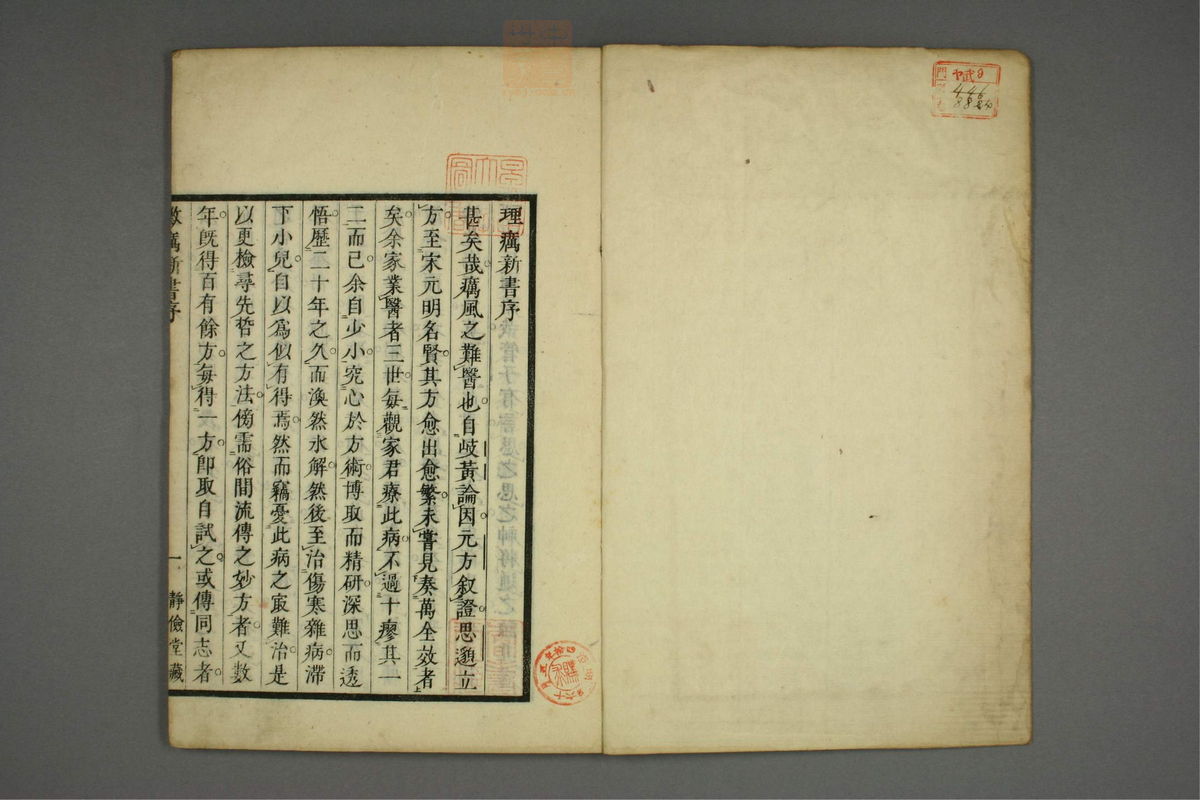 理癘新書序
甚矣哉癘風之難醫也自岐黃論因元方叙證思邈立
方至宋元明名賢其方愈出愈繁未嘗見奏萬全效者
矣余家業醫者三世每觀家君療此病不過十瘳其一
二而已余自少小究心於方術博取而精研深思而透
悟歷二十年之久而渙然氷解然後至治傷寒雜病滯
下小兒自以爲似有得焉然而竊憂此病之㝡難治是
以更檢尋先哲之方法傍需俗間流傳之妙方者又數
年旣得百有餘方每得一方卽取自試之或傳同志者
癘新書序
一
靜儉堂藏
446